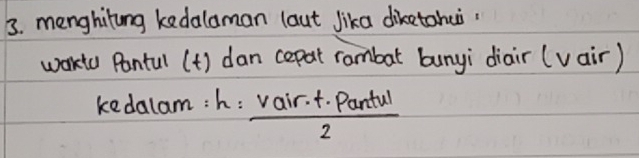 3. menghitung kedalaman laut jika diketahui :
waktu Pantul (t) dan cepat rambat bunyi diair (v air)
kedalam : h : v air . t . Pantul
2